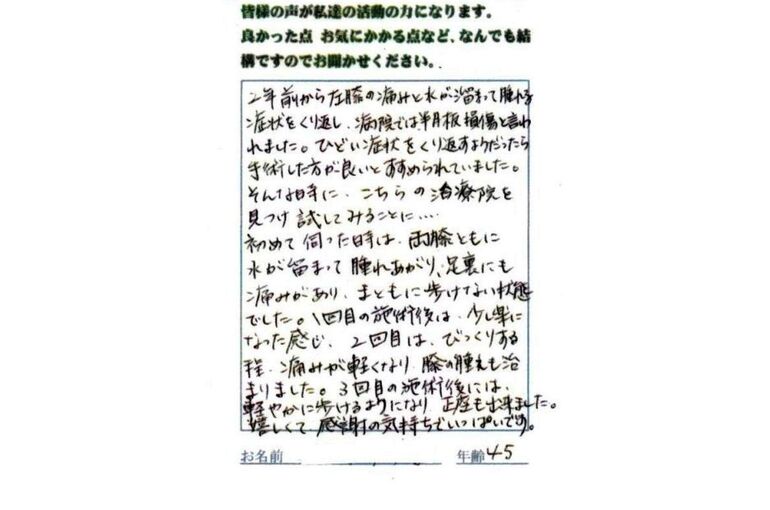 皆様の声が私達の活動の力になります。
良かった点 お気にかかる点など、なんでも結
構ですのでお聞かせください。
2年前から左膝の痛みと水が溜まって腫れる
症状をくり返し、病院では半月板損傷と言わ
れました。ひどい症状をくり返すようだったら
手術した方が良いとすすめられていました。
そんな時に、こちらの治療院を
見つけ試してみることに....
初めて伺った時は、両膝ともに
水が留まって腫れあがり、足裏にも
痛みがあり、まともに歩けない状態
でした。1回目の施術後は、少し楽に
なった感じ、2回目は、びっくりする
程、痛みが軽くなり、膝の腫れも治
まりました。3回目の施術後には、
軽やかに歩けるようになり 正座も出来ました。
嬉しくて感謝の気持ちでいっぱいです。
お名前 年齢 45